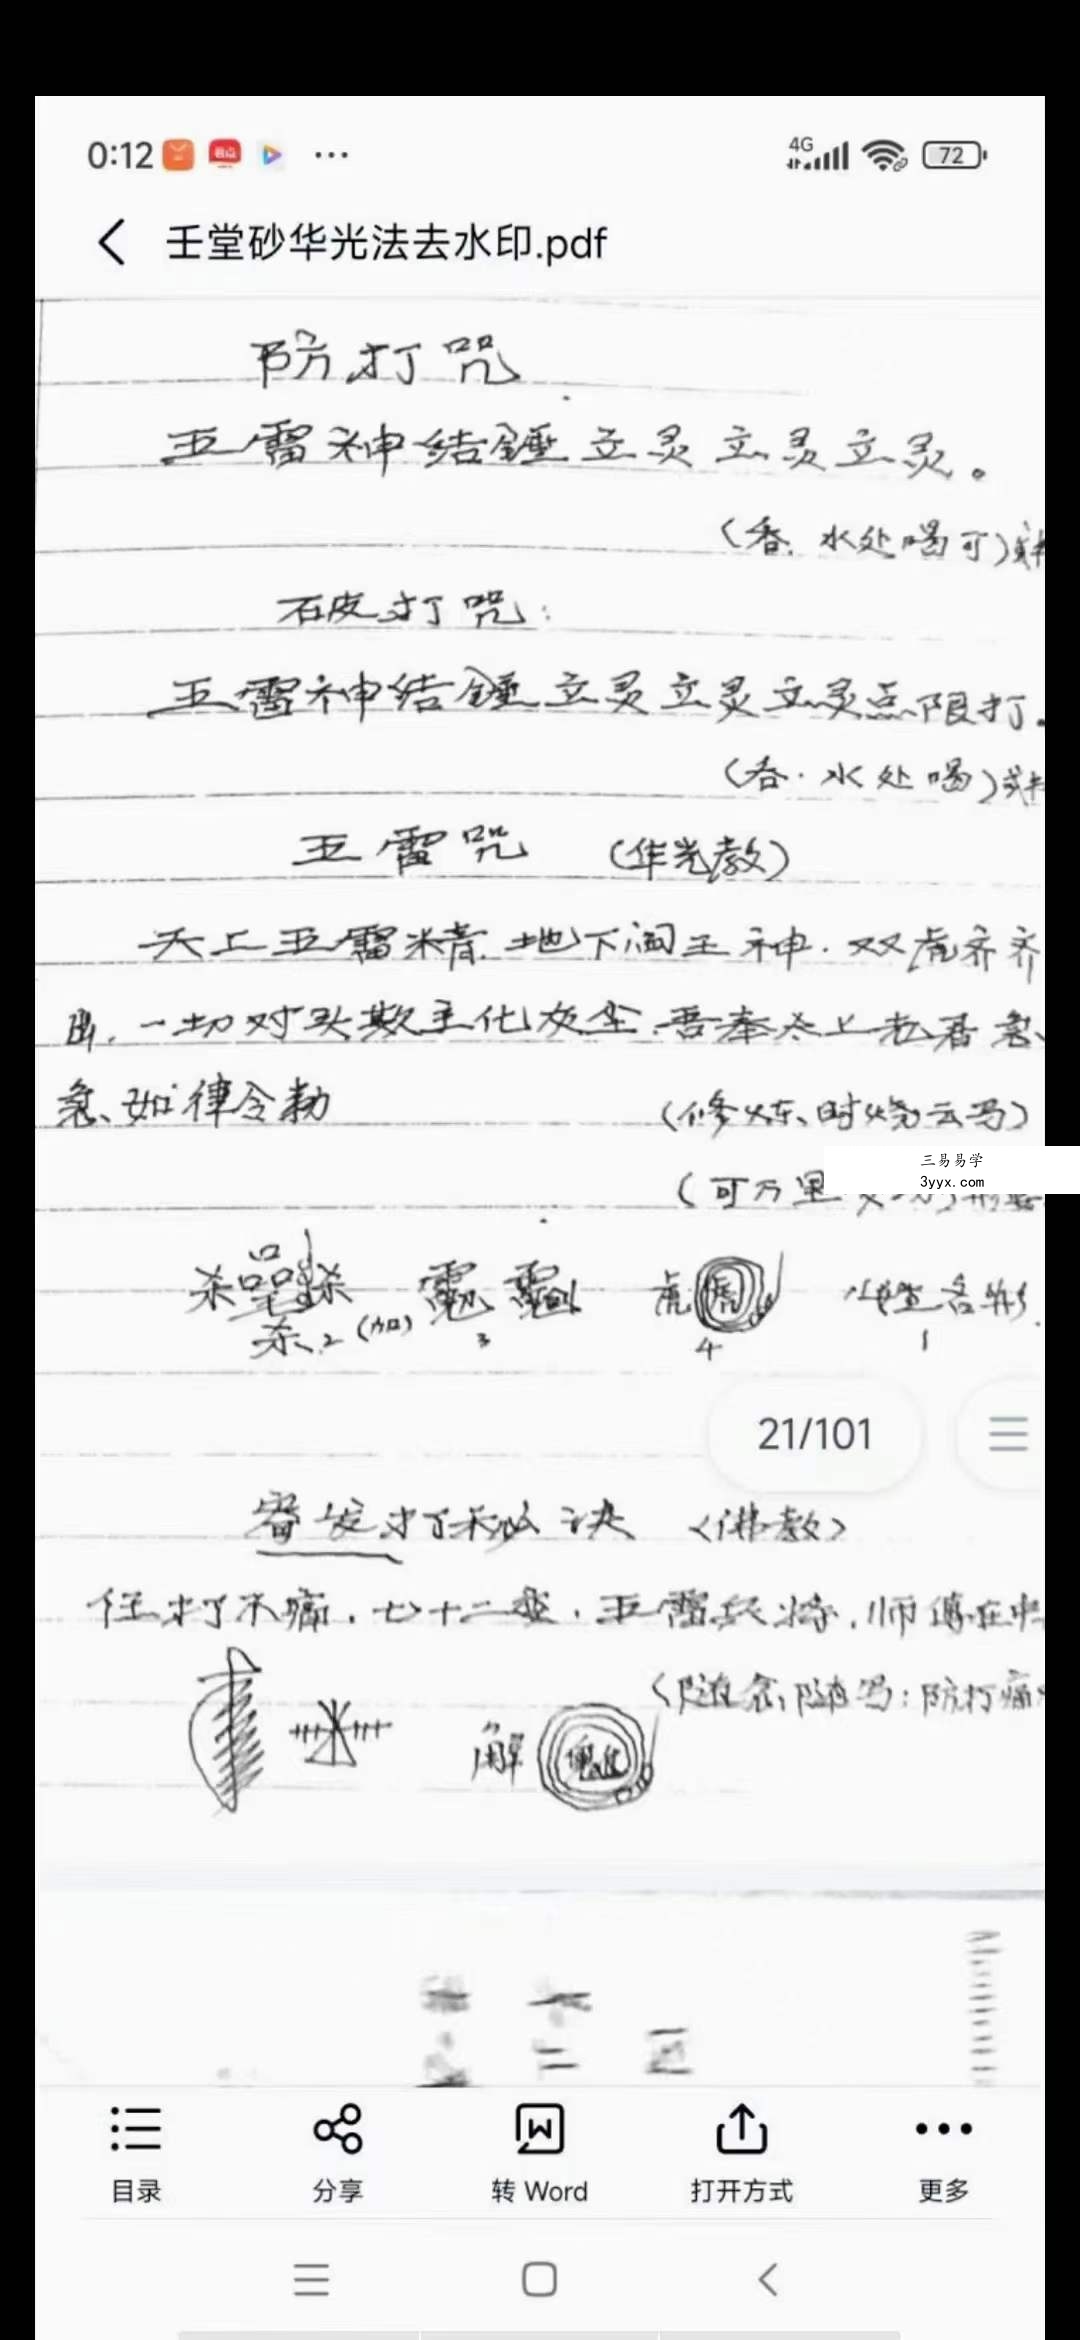 0:12
4G
72
壬堂砂华光法去水印.pdf
防打咒
五雷神结锤立灵立灵立灵。
(香.水处喝可)
破打咒：
五雷神结锤立灵立灵立灵点限打。
(香.水处喝)
五雷咒 (华光教)
天上五雷精.地下阎王神.双虎齐齐
出.一切对头欺主化灰尘.吾奉太上老君急、
急、如律令勅
(修炼、时烧云马)
三易易学
3yyx.com
(可万里
杀 杀
杀.2 (加) 3 虎 4 1
21/101
打 诀 〈佛教〉
任打不痛.七十二变.五雷兵将.师傅在
(随念,随写:防打痛
解
目录 分享 转 Word 打开方式 更多